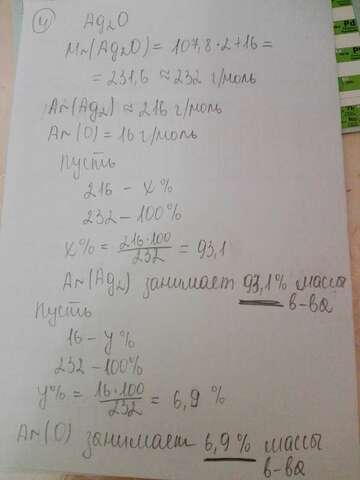 4) Ag₂O
Mr(Ag₂O) = 107,8·2+16=
= 231,6 ≈ 232 г/моль
Ar(Ag₂) ≈ 216 г/моль
Ar(O) = 16 г/моль
Пусть
216 – x%
232 – 100%
x% = 216·100/232 = 93,1
Ar(Ag₂) занимает 93,1% массы
в-ва
Пусть
16 – y%
232 – 100%
y% = 16·100/232 = 6,9 %
Ar(O) занимает 6,9% массы
в-ва